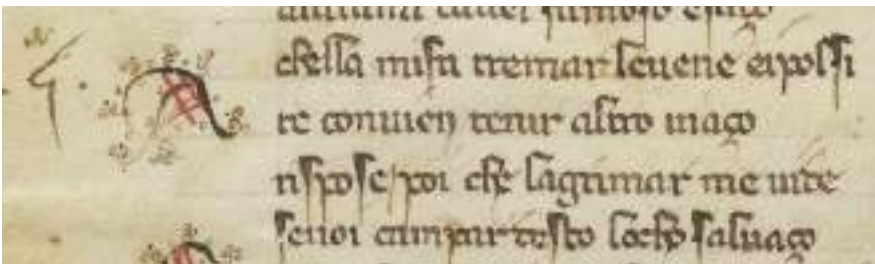 famoso
chella mifa tremar leuene eipolsi
A te conuien tenir altro uiaço
rispose poi che lagrimar me uide
seuoi campar desto locho saluaço